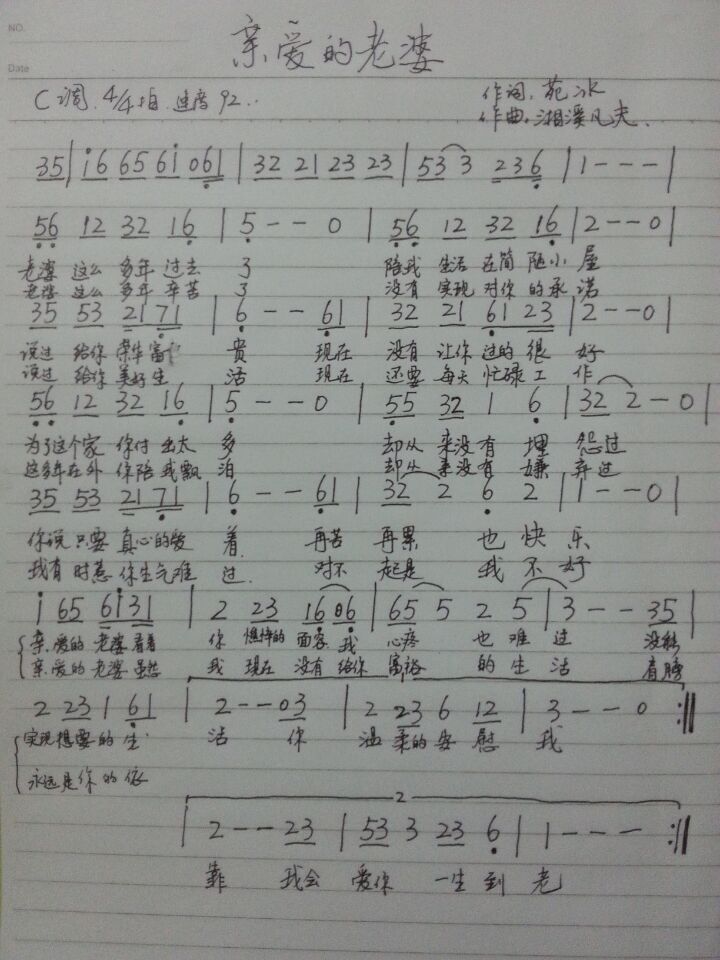 NO.
Date
亲爱的老婆
C调. 4/4拍. 速度92..
作词: 苑冰
作曲: 湘溪凡夫.
35| i6 65 6i 061 | 32 21 23 23 | 53 3 236 | 1 - - - |
56 12 32 16 | 5 - - 0 | 56 12 32 16 | 2 - - 0 |
老婆 这么 多年 过去 了 陪我 生活 在简 陋小 屋
老婆 这么 多年 辛苦 了 没有 实现 对你 的承 诺
35 53 21 71 | 6 - - 61 | 32 21 61 23 | 2 - - 0 |
说过 给你 荣华富 贵 现在 没有 让你 过的 很 好
说过 给你 美好生 活 现在 还要 每天 忙碌 工 作
56 12 32 16 | 5 - - 0 | 55 32 1 6 | 32 2 - 0 |
为了这个家 你付 出太 多 却从 来没有 埋 怨过
这多年在外 你陪 我飘 泊 却从 来没有 嫌 弃过
35 53 21 71 | 6 - - 61 | 32 2 6 2 | 1 - - 0 |
你说 只要 真心的爱 着. 再苦 再累 也 快 乐
我有 时惹 你生气难 过. 对不 起是 我 不 好
i 65 6i 31 | 2 23 16 06 | 65 5 2 5 | 3 - - 35 |
亲.爱的 老婆 看着 你 憔悴的 面容 我 心疼 也 难 过 没能
亲.爱的 老婆 虽然 我 现在 没有 给你 富裕 的 生 活 肩膀
2 23 1 61 | 2 - - 03 | 2 23 6 12 | 3 - - 0 :||
实现想要的 生 活 你 温 柔的 安 慰 我
永远是你的 依
2
| 2 - - 23 | 53 3 23 6 | 1 - - - :||
靠 我会 爱你 一生 到 老